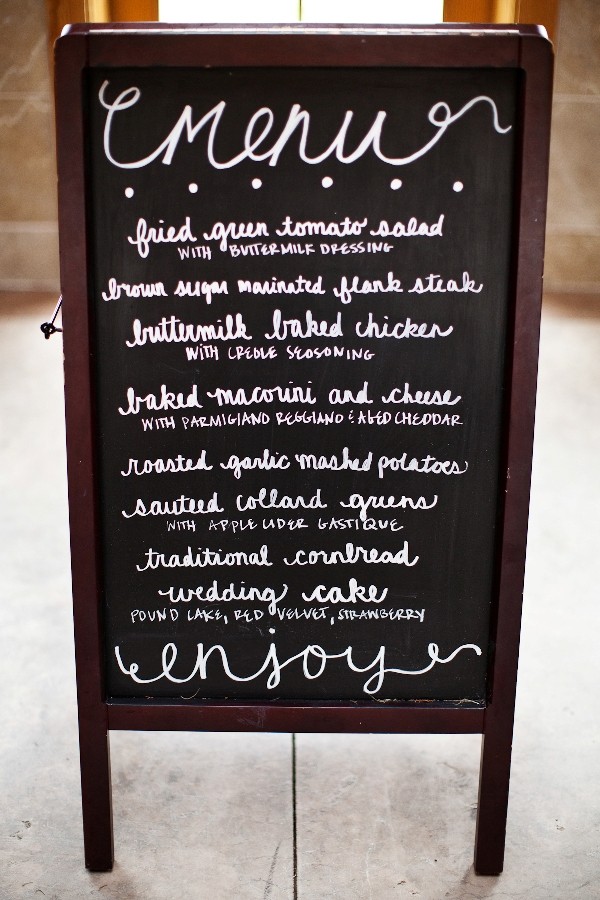 menu
fried green tomato salad
WITH BUTTERMILK DRESSING
brown sugar marinated flank steak
buttermilk baked chicken
WITH CREOLE SEASONING
baked macorini and cheese
WITH PARMIGIANO REGGIANO & AGED CHEDDAR
roasted garlic mashed potatoes
sauteed collard greens
WITH APPLE CIDER GASTIQUE
traditional cornbread
wedding cake
POUND CAKE, RED VELVET, STRAWBERRY
enjoy